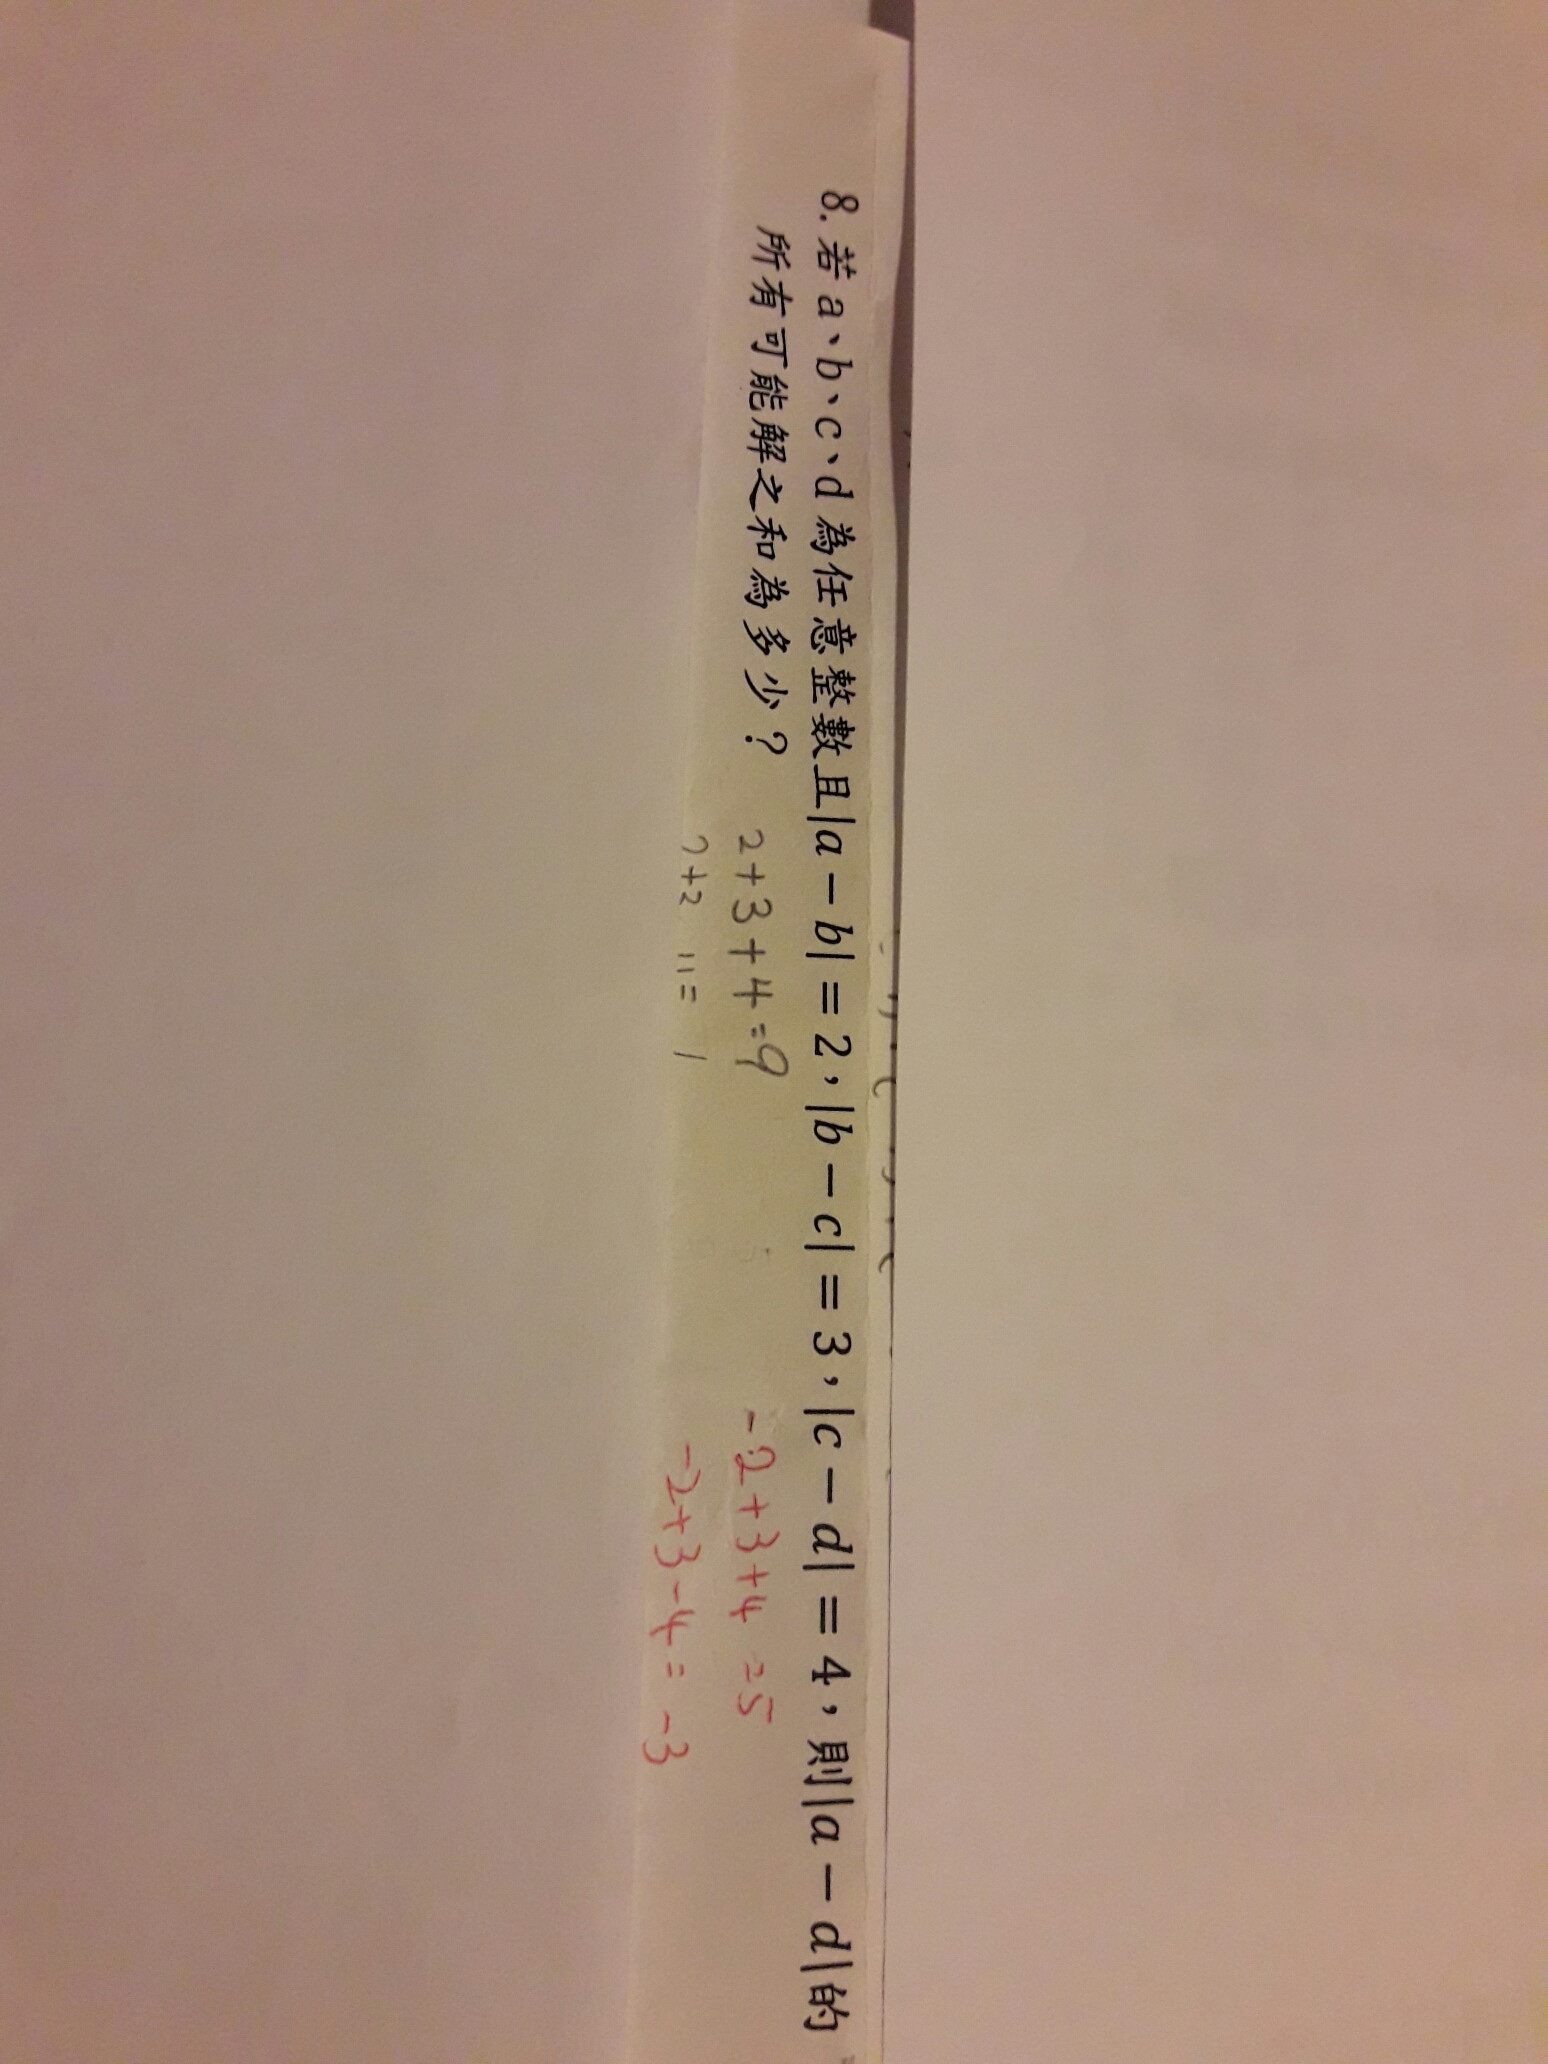 8. 若 a、b、c、d 為任意整數且|a－b|＝2，|b－c|＝3，|c－d|＝4，則|a－d|的
所有可能解之和為多少？
2+3+4=9
-2+3+4=5
-2+3-4=-3